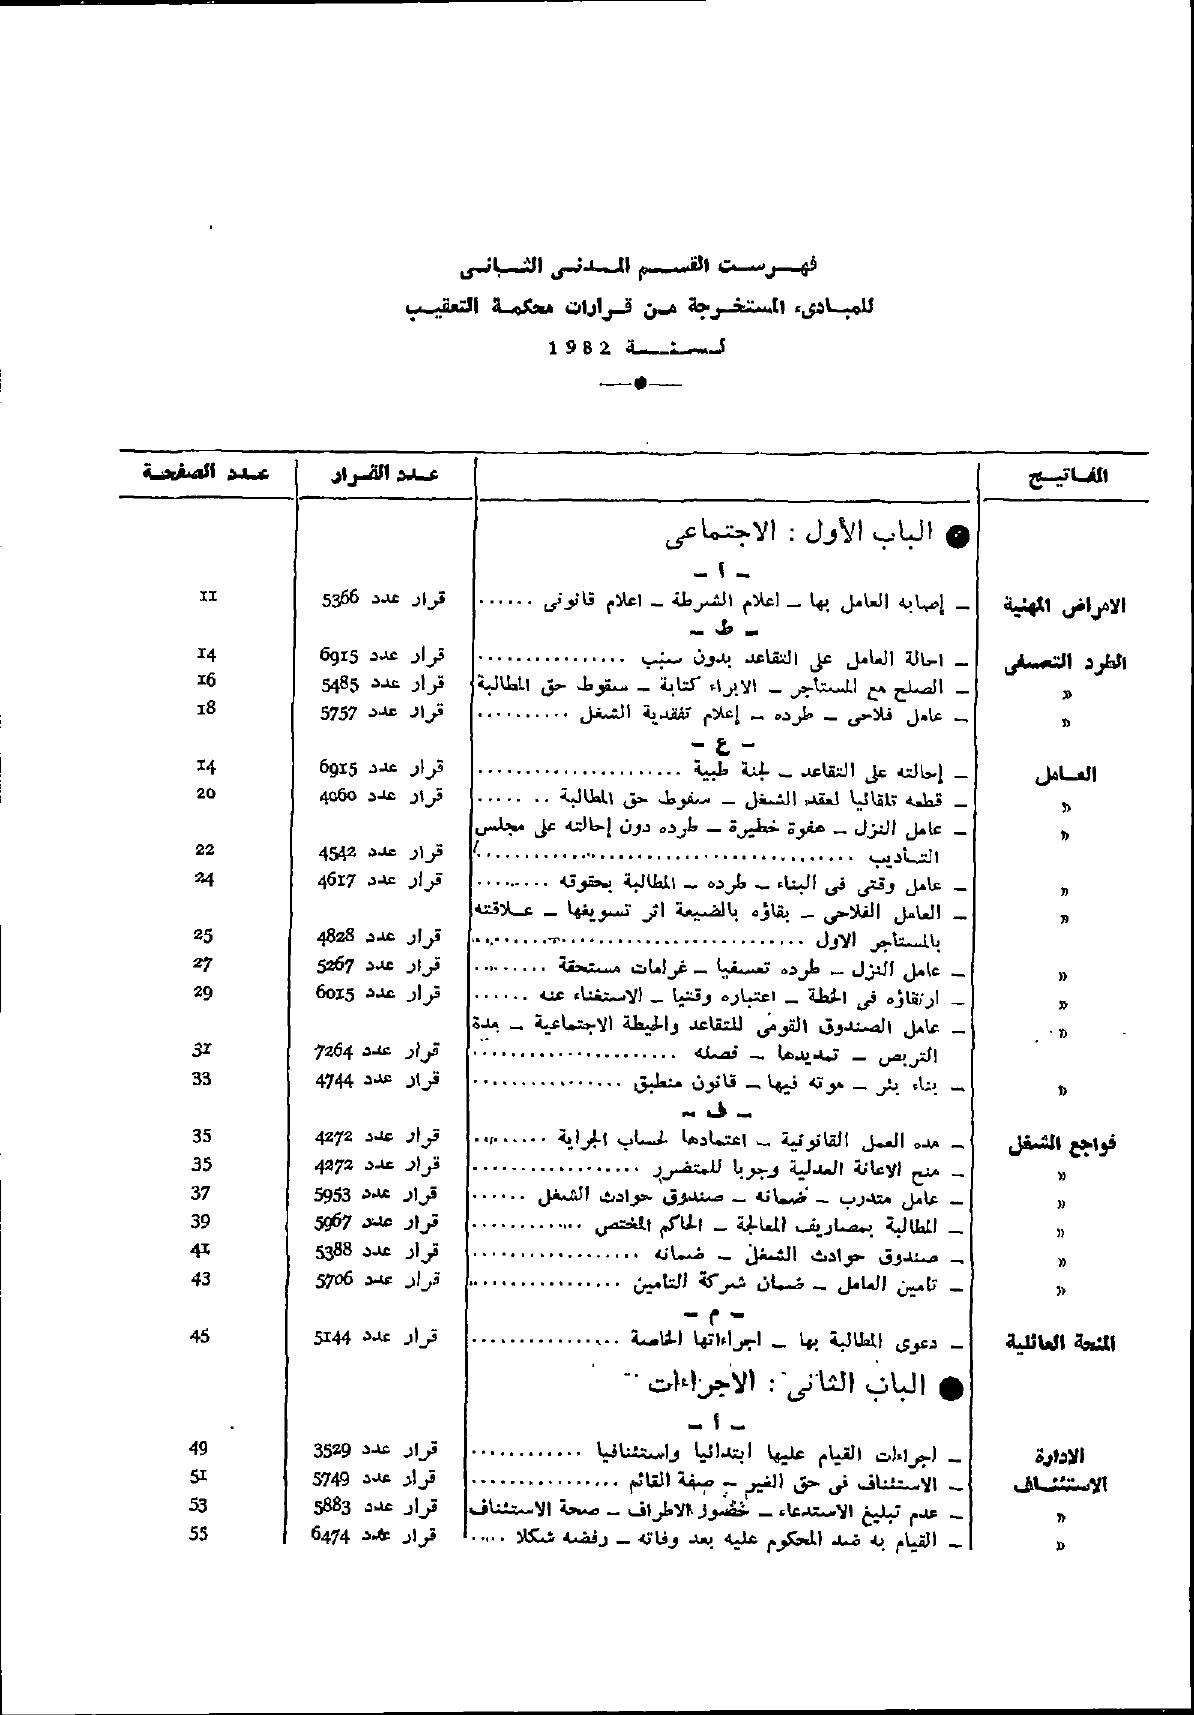 فهرست القسم المدني الثاني
للمبادىء المستخرجة من قرارات محكمة التعقيب
لسنة 1982
المفاتيح عدد القرار عدد الصفحة
الباب الأول : الاجتماعى
– أ –
الامراض المهنية – إصابه العامل بها – اعلام الشرطة – اعلام قانونى ...... قرار عدد 5366 11
– ط –
الطرد التعسفى – احالة العامل على التقاعد بدون سبب ................ قرار عدد 6915 14
« – الصلح مع المستأجر – الابراء كتابة – سقوط حق المطالبة قرار عدد 5485 16
« – عامل فلاحى – طرده – إعلام تفقدية الشغل .......... قرار عدد 5757 18
– ع –
العامل – إحالته على التقاعد – لجنة طبية ...................... قرار عدد 6915 14
« – قطعه تلقائيا لعقد الشغل – سقوط حق المطالبة ....... قرار عدد 4060 20
« – عامل النزل – هفوة خطيرة – طرده دون إحالته على مجلس
التأديب ........................................ قرار عدد 4542 22
« – عامل وقتى فى البناء – طرده – المطالبة بحقوقه ......... قرار عدد 4617 24
« – العامل الفلاحى – بقاؤه بالضيعة اثر تسويغها – علاقته
بالمستأجر الاول .................................. قرار عدد 4828 25
« – عامل النزل – طرده تعسفيا – غرامات مستحقة ......... قرار عدد 5267 27
« – ارتقاؤه فى الخطة – اعتباره وقتيا – الاستغناء عنه ...... قرار عدد 6015 29
« – عامل الصندوق القومى للتقاعد والحيطة الاجتماعية – مدة
التربص – تمديدها – فصله ...................... قرار عدد 7264 31
« – بناء بئر – موته فيها – قانون منطبق ................ قرار عدد 4744 33
– ف –
فواجع الشغل – مده العمل القانونية – اعتمادها لحساب الجراية ......... قرار عدد 4272 35
« – منح الاعانة العدلية وجوبا للمتضرر .................. قرار عدد 4272 35
« – عامل متدرب – ضمانه – صندوق حوادث الشغل ...... قرار عدد 5953 37
« – المطالبة بمصاريف المعالجة – الحاكم المختص ............ قرار عدد 5967 39
« – صندوق حوادث الشغل – ضمانه .................. قرار عدد 5388 41
« – تامين العامل – ضمان شركة التامين ................ قرار عدد 5706 43
– م –
المنحة العائلية – دعوى المطالبة بها – اجراءاتها الخاصة ................ قرار عدد 5144 45
الباب الثانى : الاجراءات
– أ –
الادارة – اجراءات القيام عليها ابتدائيا واستئنافيا ............ قرار عدد 3529 49
الاستئناف – الاستئناف فى حق الغير – صفة القائم ................ قرار عدد 5749 51
« – عدم تبليغ الاستدعاء – حضور الاطراف – صحة الاستئناف قرار عدد 5883 53
« – القيام به ضد المحكوم عليه بعد وفاته – رفضه شكلا ...... قرار عدد 6474 55